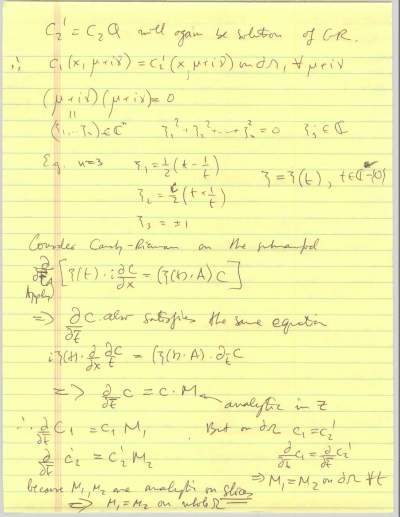 C₂' = C₂ Q will again be solution of C-R.
∴ C₁(x, μ+iν) = C₂'(x, μ+iν) on ∂Ω, ∀ μ+iν
(μ+iν)(μ+iν) = 0
"
(ζ₁,..ζₙ) ∈ ℂⁿ ζ₁² + ζ₂² + ... + ζₙ² = 0 ζⱼ ∈ ℂ
Eg. n=3 ζ₁ = ½(t - 1/t)
ζ₂ = i/2 (t + 1/t) ζ = ζ(t), t ∈ ℂ-{0}
ζ₃ = ±1
Consider Cauchy-Riemann on the submanifold
Apply ∂/∂t̄ [ζ(t)·i ∂C/∂x = (ζ(t)·A) C]
⇒ ∂/∂t̄ C also satisfies the same equation
i ζ(t)·∂/∂x ∂C/∂t̄ = (ζ(t)·A)·∂_t̄ C
⇒ ∂/∂t̄ C = C·M
analytic in z
∴ ∂/∂t̄ C₁ = C₁ M₁ But on ∂Ω C₁ = C₂'
∂/∂t̄ C₂' = C₂' M₂ ∂/∂t̄ C₁ = ∂/∂t̄ C₂'
⇒ M₁ = M₂ on ∂Ω ∀t
because M₁, M₂ are analytic on slices
⇒ M₁ = M₂ on whole Ω